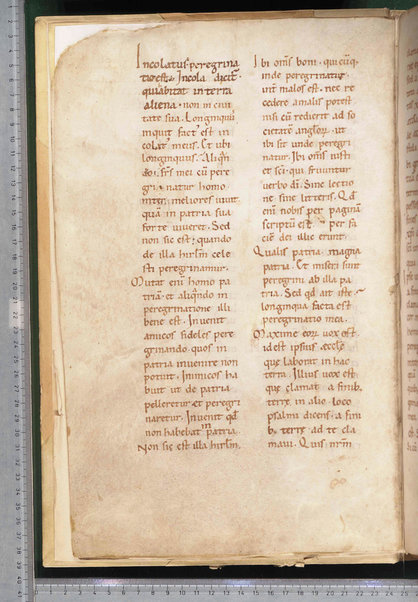 Incolatus peregrina
tio est. Incola dicit
qui abitat in terra
aliena. non in civi
tate sua. Longinquū
inquit fact' est in
colat' meus. Et ubi
longinquus. Aliqn̄
do. frs̄ mei cū pere
gri natur homo
inter meliores vivit.
quā in patria sua
forte viveret. Sed
non sic est. quando
de illa hirlm̄ cele
sti peregrinamur.
Mutat eni homo pa
triā. et aliqn̄do in
peregrinatione illi
bene est. Invenit
amicos fideles pere
grinando. quos in
patria invenire non
potuit. Inimicos ha
buit ut de patria
pelleretur. et peregri
naretur. Invenit qd̄
non habebat in patria.
Non sic est illa hirlm̄.
Ibi om̄s boni. quicūq;
inde peregrinatur.
int' malos est. nec re
cedere a malis potest
nisi cū redierit ad so
cietatē anglorȩ. ut
ibi sit unde peregri
natur. Ibi om̄s iusti
et sc̄i. qui fruuntur
verbo dī. Sine lectio
ne. sine litteris. Qd̄
eni nobis per paginā
scriptū est. per fa
ciē dei illic erunt.
Qualis patria. magna
patria. Et miseri sunt
peregrini ab illa pa
tria. Sed qd̄ ait iste.
longinqua facta est
peregrinatio mea.
Maxime eorȩ vox est
id est ipsius ecclȩ
quȩ laborat in hac
terra. Illius vox est
quȩ clamat a finib;
terrȩ. in alio loco
psalmi dicens. a fini
b; terrȩ ad te cla
mavi. Quis nrm̄